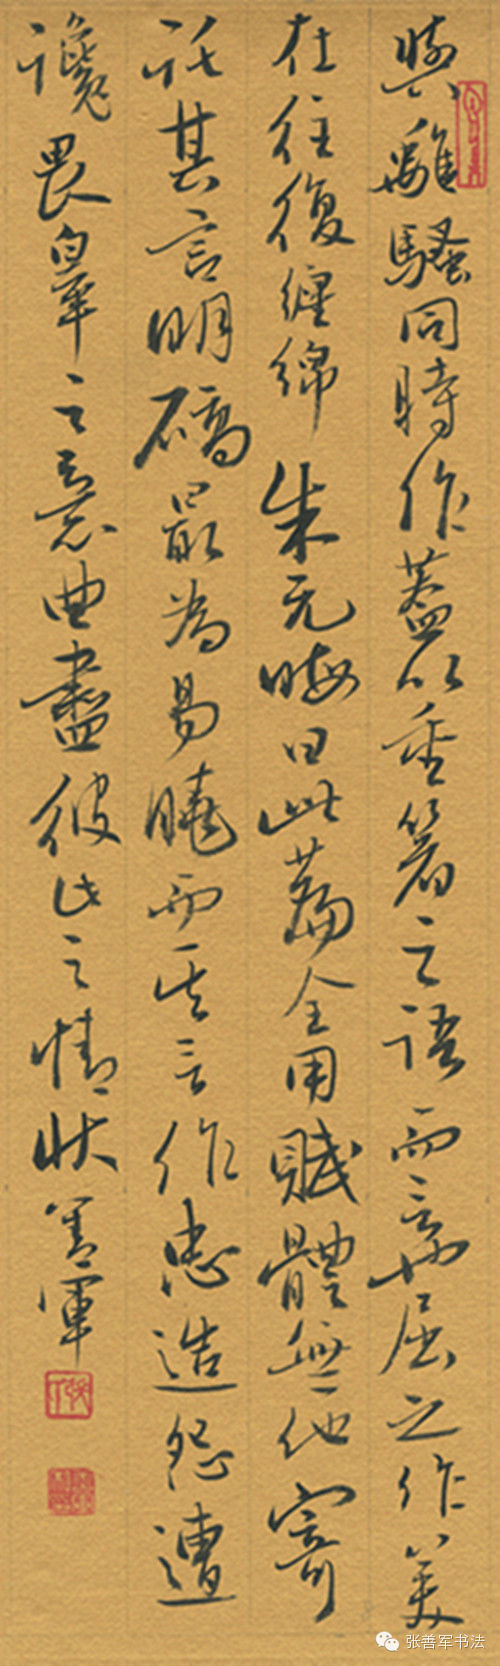 與離騷同時作蓋以重著之語而屈之作美
在往復纏綿朱元晦曰此篇全用賦體無他寄
託其言明碻最為易曉而其言作忠造怨遭
讒畏辠之意曲盡彼此之情狀善軍
张善军书法